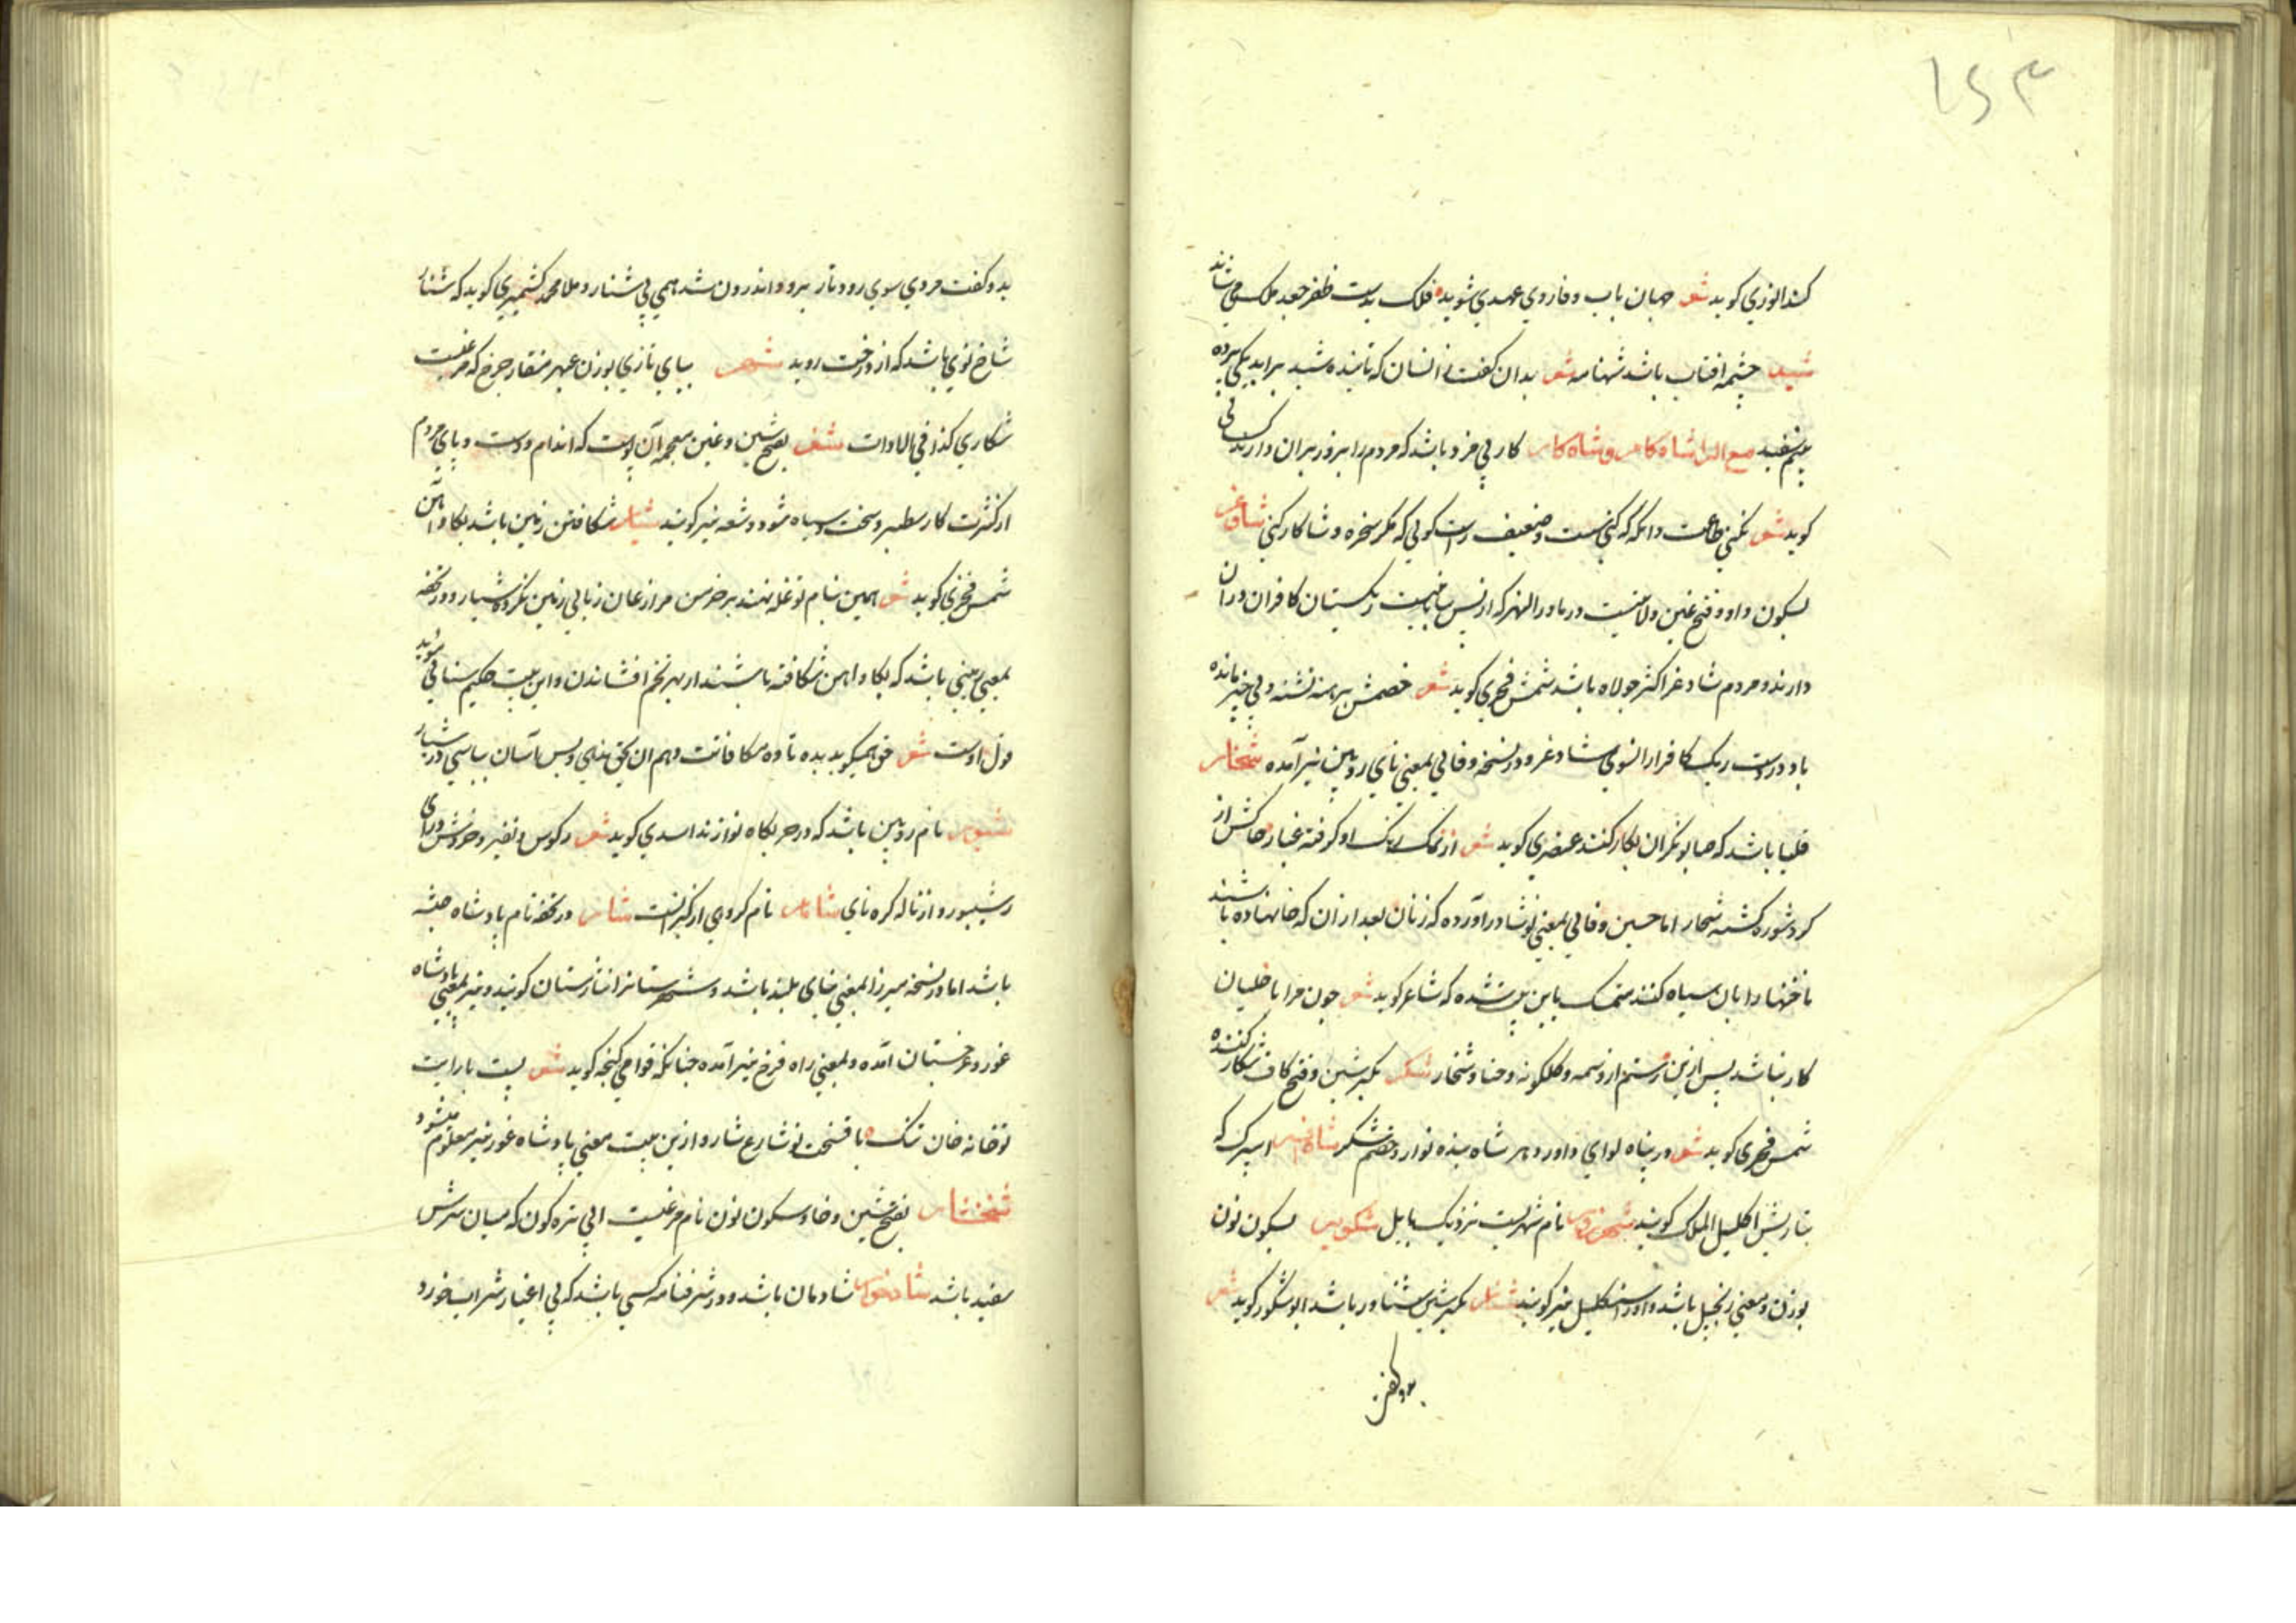 ۱۵۳
کند انوری کوید شعر جهان باب وفا روی عهدی شوید فلک بدست ظفر جعد ملک می شاند
شید چشمه افتاب باشد شهنامه شعر بدان کفتم انسان که تابنده شید براید یکی پرده
بینم سفید مع الرا شاه کار و شاکار کار بی مزد باشد که مردم را بزور بران دارند کسائی
کوید شعر نکنی طاعت وانکه که کنی سست و ضعیف راست کوئی که مکر سخره و شاکار کنی شاوغر
بسکون واو و فتح غین ولایتیست در ماوراالنهر که از پس بیابانیست ریکستان کافران دران
دارند و مردم شاوغر اکثر جولاه باشد شمس فخری کوید شعر خصمش برهنه تشنه و بی خیر مانده
باد در دست ریک کافر ازانسوی شاوغر و در نسخه وفائی بمعنی نای رویین نیز آمده شخار
قلیا باشد که صابونکران بکار کنند عنصری کوید شعر از نمک رنک او کرفته غبار خاکش از
کرد شوره کشته شخار اما حسین وفائی بمعنی نوشادر آورده که زنان بعد از آن که حنا نهاده باشند
ناخنها را بان سیاه کنند متمسک باین بیت شده که شاعر کوید شعر چون مرا با خلیان
کار نباشد پس ازین رستم از وسمه و کلکونه و حنا و شخار شکر بکسر شین و فتح کاف شکار کننده
شمس فخری کوید شعر در پناه لوای داور دهر شاه بنده نواز و خصم شکر شاه افسر اسپرک که
بتازیش اکلیل الملک کویند شهرزور نام شهریست نزدیک بابل شنکویر بسکون نون
بوزن و معنی زنجبیل باشد و اورا شنکلیل نیز کویند شنار بکسر شین شناور باشد ابوشکور کوید شعر
بدو کفت
بدو کفت مردی سوی رودبار برود اندرون شد همی بی شنار و ملا محمد کشمیری کوید که شنار
شاخ نوی باشد که از درخت روید بیای تازی بوزن عبهر منقار چرخ که مرغیست
شکاری کذا فی الادات شغر بفتح شین و غین معجمه آن پوست که اندام و دست و پای مردم
از کثرت کار سطبر و سخت و سیاه شود و شغه نیز کویند شیار شکافتن زمین باشد بکاو آهن
شمس فخری کوید شعر همین بنام تو غله نهند بر خرمن مزارعان زبانی زمین نکرده شیار و در تحفه
بمعنی زمینی باشد که بکاو اهن شکافته باشند از بهر تخم افشاندن و این بیت حکیم سنائی موید
قول اوست شعر حق همیکوید بده تا ده مکافاتت دهم آن بحق ندهی و پس آسان بپاشی در شیار
شیپور نام رویین باشد که در حربکاه نوازند اسدی کوید شعر ز کوس و نفیر و خروش درای
ز شیپور و از ناله کره نای شابار نام کروهی از کبرانست شار در تحفه نام پادشاه حبشه
باشد اما در نسخه میرزا بمعنی بنای بلند باشد و شهرستانرا شارستان کویند و نیز بمعنی پادشاه
غور و غرجستان آمده و بمعنی راه فرخ نیز آمده چنانکه قوامی کنجه کوید شعر بیت بارایت
تو خانه خان تنک با فسحت تو شارع شار و ازین بیت معنی پادشاه غور نیز معلوم میشود
شخنشار بفتح شین و خا و سکون نون نام مرغیست ابی تیره کون که میان سرش
سفید باشد شادخوار شادمان باشد و در شرفنامه کسی باشد که بی اغیار شراب خورد